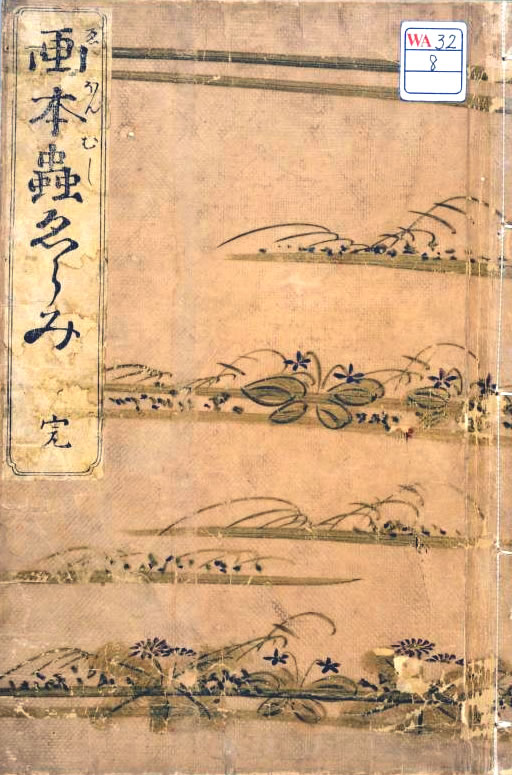 画本蟲ゑらみ
ゑほんむし
完
WA 32
8